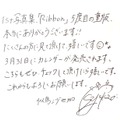 1st写真集「Ribbon」5度目の重版、
本当にありがとうございます!!
たくさんの方に見て頂けて嬉しいです
3月31日にカレンダーが発売されます。
こちらもぜひチェックして頂けたら嬉しいです。
これからもよろしくお願いします。